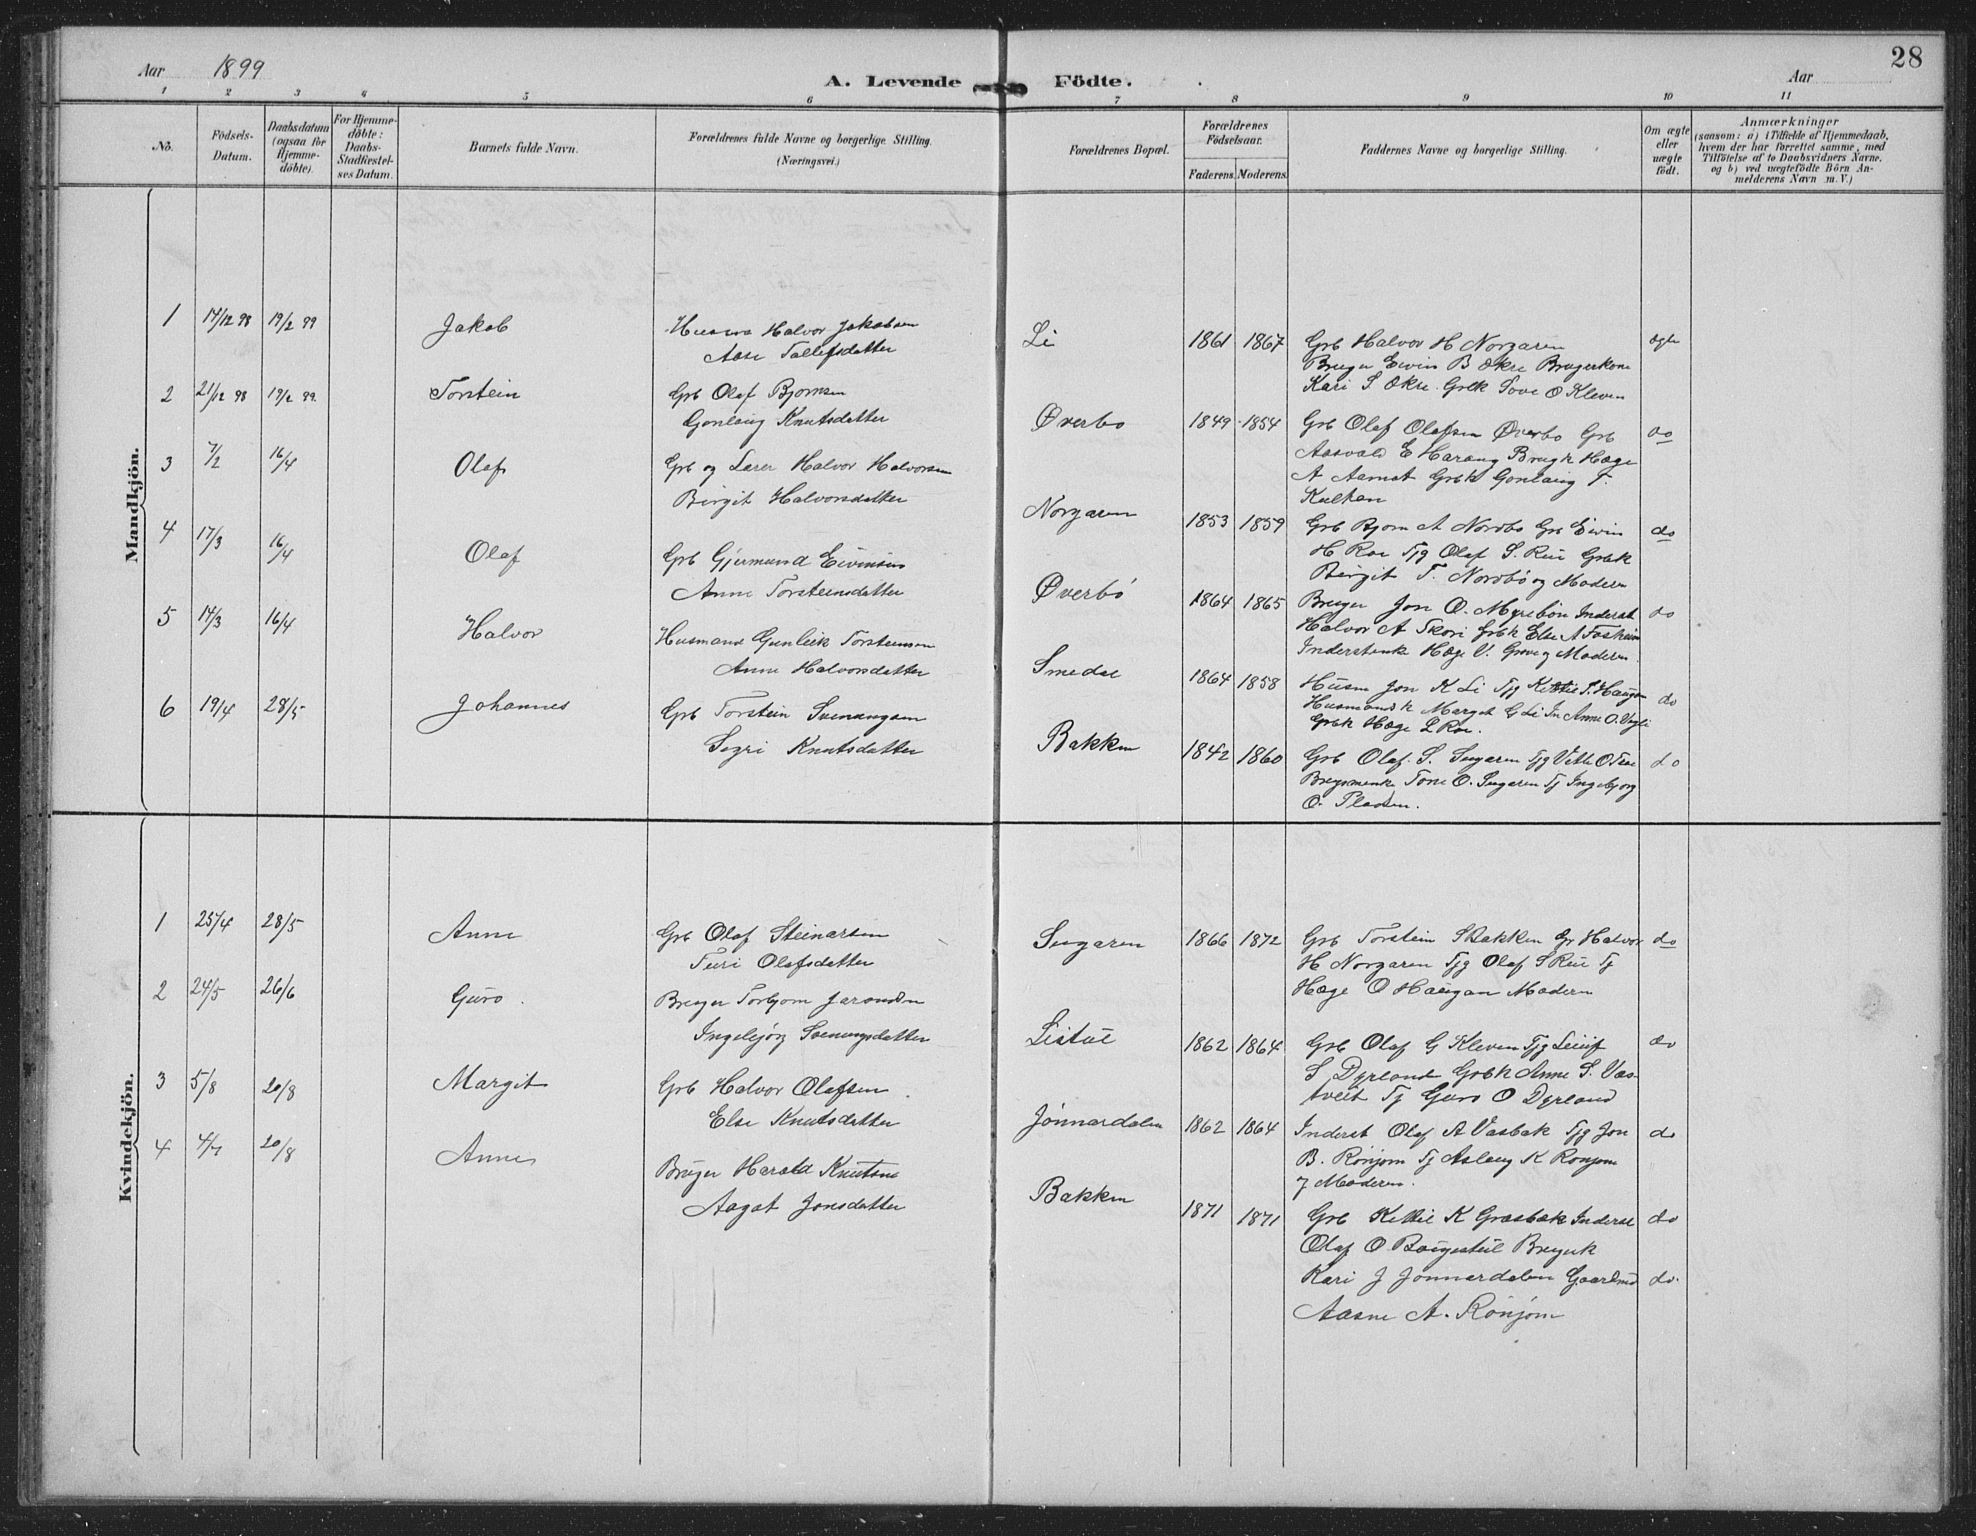 28
Aar 1899
A. Levende Födte.
Aar
1 2 3 4 5 6 7 8 9 10 11
No.
Födsels-Datum.
Daabsdatum (ogsaa for Hjemme-döbte).
For Hjemme-döbte: Daabs-Stadfæstel-ses Datum.
Barnets fulde Navn.
Forældrenes fulde Navne og borgerlige Stilling. (Næringsvei.)
Forældrenes Bopæl.
Forældrenes Födselsaar.
Faderens. Moderens.
Faddernes Navne og borgerlige Stilling.
Om ægte eller uægte födt.
Anmærkninger
(saasom: a) i Tilfælde af Hjemmedaab,
hvem der har forrettet samme, med
Tilföielse af to Daabsvidners Navne.
og b) ved uægtefödte Börn An-
melderens Navn m.V.)
Mandkjön.
1 14/12 98 19/2 99 Jakob
Halvor Jakobsen
Aase Tallefsdatter
Li 1861 1867
Grb Halvor H Norgaren
Bruger Eivin B Økre Brugerkone
Kari S Økre Grbk Tove O Kleven
ægte
2 21/12 98 19/2 99 Torstein
Grb Olaf Bjornsen
Gonlaug Knutsdatter
Øverbø 1849 1854
Grb Olaf Olafsen Øverbø Grb
Aasvald E Harang Brugk Hæge
A Aamot Grbk Gonlaug T.
do
3 7/2 16/4 Olaf
Grb og Lærer Halvor Halvorsen
Birgit Halvorsdatter
Norgaren 1853 1859
Grb Bjorn A Nordbø Grb Eivin
H Roe Tjg Olaf S. Rui Grbk
Birgit T. Nordbø og Moderen
do
4 17/3 16/4 Olaf
Grb Gjermund Eivinsen
Anne Torsteinsdatter
Øverbö 1864 1865
Bruger Jon O. Myrebøn Inderst
Halvor A Skori Grbk Else A Fosheim
Inderstenke Hæge V. Grove og Moderen.
do
5 14/3 16/4 Halvor
Husmand Gunleik Torsteinsen
Anne Halvorsdatter
Smedal 1864 1858
Husm Jon K Li Tjg Kittil T. Haugen
Husmandsk Margit G Li In Anne O.
Grbk Hæge L Roe.
do
6 19/4 28/5 Johannes
Grb Torstein Svenungsen
Sigri Knutsdatter
Bakken 1842 1860
Grb Olaf. S. Sugaren Tjg Vetle O
Tone O. Sugaren Tj Ingebjorg
O. Pladsen.
do
Kvindekjön.
1 25/4 28/5 Anne
Grb Olaf Steinarsen
Turi Olafsdatter
Sugaren 1866 1872
Grb Torstein S Bakken Gr Halvor
H Norgaren Tjg Olaf S Rui Tj
Hæge O Haugan Modern
do
2 24/5 26/6 Guro.
Bruger Torbjorn Jarandsen
Ingebjørg Svenungsdatter
Listul 1862 1864
Grb Olaf G Kleven Tjg Leiuf
S Dyrland Grbk Anne S. Vas-
tveit Tj Guro O Dyrland
do
3 5/8 20/8 Margit
Grb Halvor Olafsen
Else Knutsdatter
Jönnardalen 1862 1864
Inderst Olaf A Vasbæk Tjg Jon
B. Rönjom Tj Aslaug K Ronjom
og Moderen.
do
4 4/7 20/8 Anne
Bruger Harald Knutsen
Aagot Jonsdatter
Bakken 1871 1871
Grb Kittil K Græsbæk Inderst
Olaf O Brugerk
Kari J Jonnardalen Gaardmd
Aasne A. Rönjom
do
do.